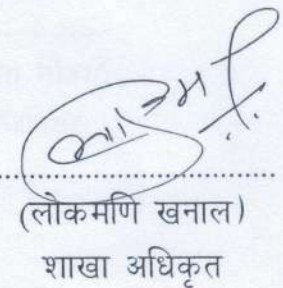 (लोकमणि खनाल)
शाखा अधिकृत